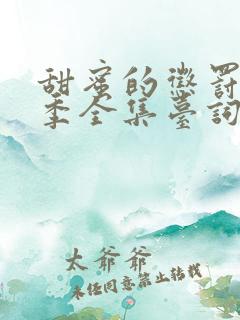 甜蜜的懲罰
季全集臺詞
太爺爺
未经同意禁止转载